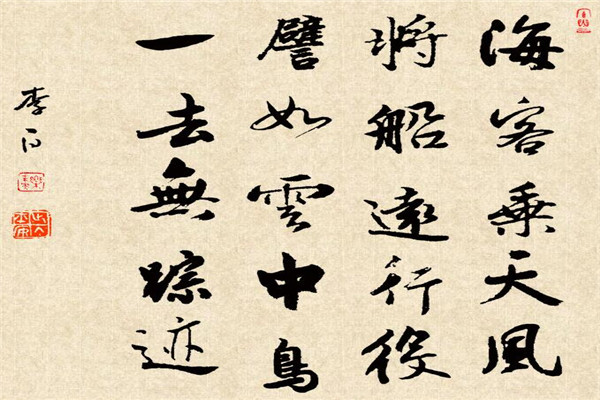 海客乗天風
将船遠行役
譬如雲中鳥
一去無踪迹
李白